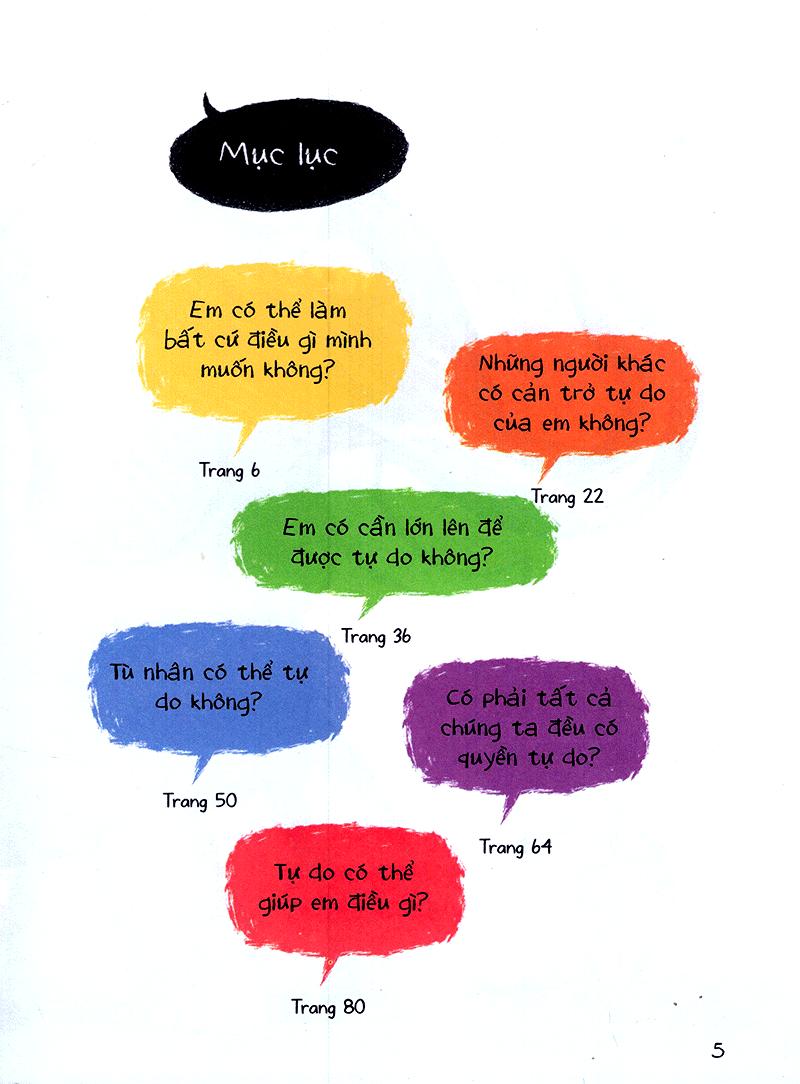 Mục lục
Em có thể làm
bất cứ điều gì mình
muốn không?
Trang 6
Những người khác
có cản trở tự do
của em không?
Trang 22
Em có cần lớn lên để
được tự do không?
Trang 36
Tù nhân có thể tự
do không?
Trang 50
Có phải tất cả
chúng ta đều có
quyền tự do?
Trang 64
Tự do có thể
giúp em điều gì?
Trang 80
5